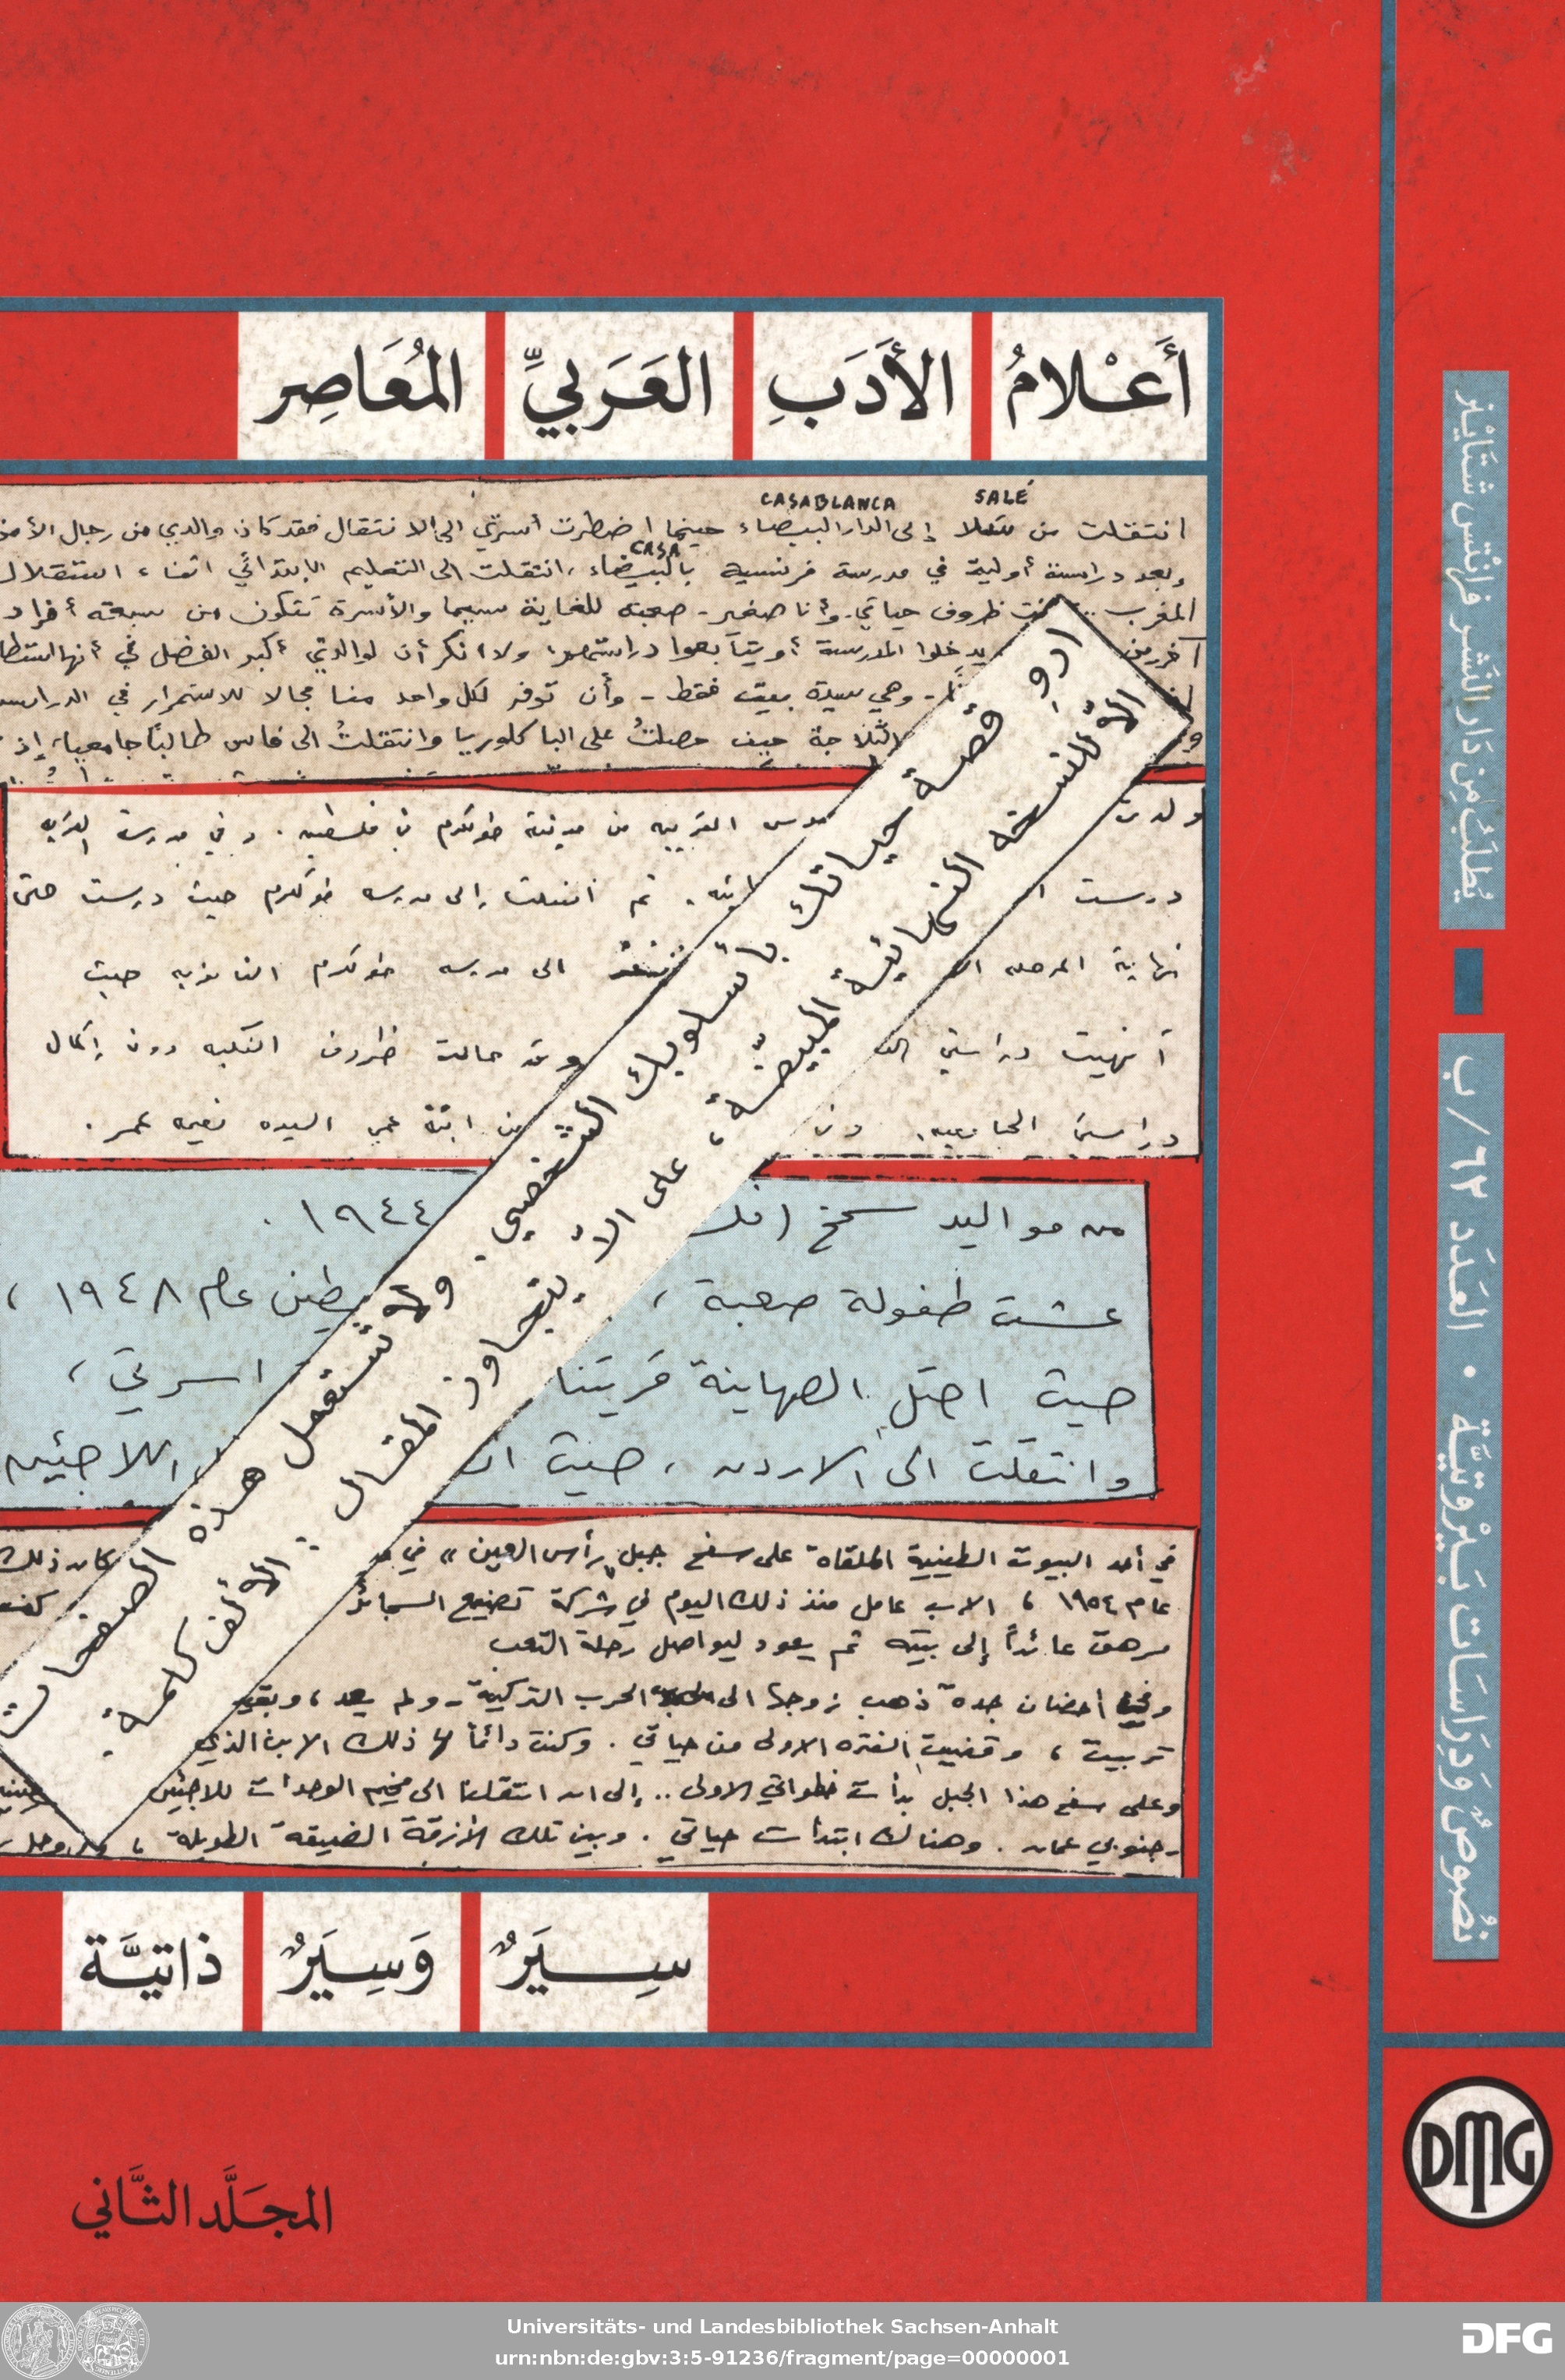 أَعْلامُ الأَدَبِ العَرَبيِّ المُعَاصِر
CASABLANCA SALÉ
انتقلت من سلا إلى الدار البيضاء حينما اضطرت أسرتي الى الانتقال فقد كان والدي من رجال الأمن
CASA
وبعد دراسة أولية في مدرسة فرنسية بالبيضاء، انتقلت الى التعليم الابتدائي اثناء استقلال
المغرب .. كانت ظروف حياتي - وأنا صغير - صعبة للغاية سيما والأسرة تتكون من سبعة أفراد
آخرين يدخلوا المدرسة أو يتابعوا دراستهم، ولا انكر أن لوالدتي أكبر الفضل في أنها استطا
- وهي سيدة بيت فقط - وأن توفر لكل واحد منا مجالا للاستمرار في الدراسة
الثلاجة حيث حصلتُ على الباكلوريا وانتقلتُ الى فاس طالبًا جامعيا، إذ
ولدت القريبة من مدينة طولكرم في فلسطين . وفي مدرسة القرية
درست ثم انتقلت إلى مدرسة طولكرم حيث درست حتى
نهاية المرحلة الى مدرسة طولكرم الثانوية حيث
أنهيت دراستي وقد حالت ظروف النكبة دون إكمال
دراستي الجامعية. من ابنة عمي السيدة نعيمة عمر .
من مواليد سمخ ١٩٤٤ .
عشت طفولة صعبة ، عام ١٩٤٨ ،
حيث احتل الصهاينة قريتنا اسرتي ،
وانتقلت الى الاردن ، حيث اللاجئين
في أحد البيوت الطينية الملقاة على سفح جبل "رأس العين" في كان ذلك
عام ١٩٥٤ ، الاب عامل منذ ذلك اليوم في شركة تصنيع السجائر
مرهق عائداً إلى بيته ثم يعود ليواصل رحلة التعب
وفي احضان جدة ذهب زوجها الى الحرب التركية - ولم يعد ، وبقي
تربيت ، وقضيت الفترة الاولى من حياتي . وكنت دائماً لها ذلك الابن الذي
وعلى سفح هذا الجبل بدأت خطواتي الاولى .. إلى ان انتقلنا الى مخيم الوحدات للاجئين
جنوبي عمان . وهناك ابتدأت حياتي . وبين تلك الأزقة الضيقة الطويلة ،
اروِ قصة حياتك بأسلوبك الشخصي. ولا تستعمل هذه الصفحات
إلا للنسخة النهائية المبيّضة، على الا يتجاوز المقال : الألف كلمة.
سِيَرٌ وَسِيَرٌ ذاتيَّة
المجَلَّد الثَّاني
يُطلَبُ مِن دَار النَّشر فرانتس شتَايْنر
نُصُوصٌ وَدِرَاسَات بَيْرُوتيَّة • العَدَد ٦٢/ب
DMG
Universitäts- und Landesbibliothek Sachsen-Anhalt
urn:nbn:de:gbv:3:5-91236/fragment/page=00000001
DFG